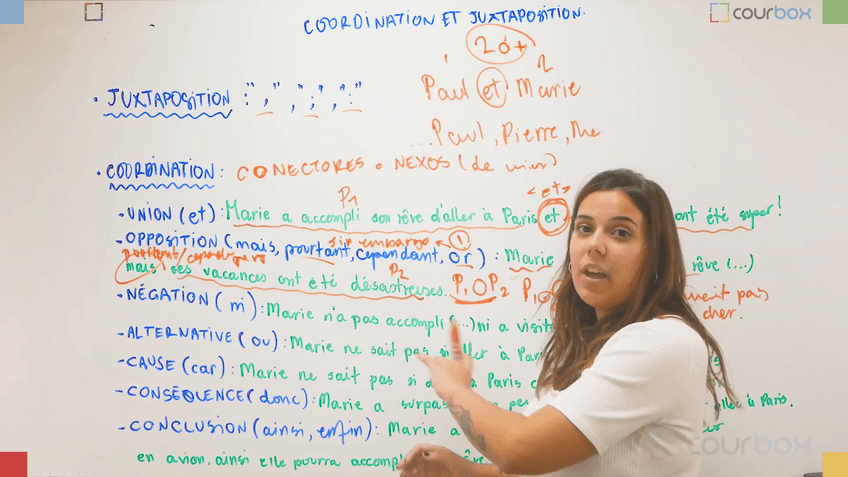 courbox
COORDINATION ET JUXTAPOSITION.
2 o +
1 2
Paul et Marie
• JUXTAPOSITION : "," ";" ":"
...Paul, Pierre, Me
• COORDINATION : CONECTORES o NEXOS (de unir)
P1 <et>
- UNION (et) : Marie a accompli son rêve d'aller à Paris et ont été super !
sin embargo ①
- OPPOSITION (mais, pourtant, cependant, or) : Marie rêve (...)
pourtant/cependant
P2
mais ses vacances ont été désastreuses... P1 O P2 P1 O pas
cher.
- NÉGATION (ni) : Marie n'a pas accompli (...) ni a visité
- ALTERNATIVE (ou) : Marie ne sait pas si aller à Paris
- CAUSE (car) : Marie ne sait pas si à Paris
- CONSÉQUENCE (donc) : Marie a à Paris.
- CONCLUSION (ainsi, enfin) : Marie a
en avion, ainsi elle pourra
courbox